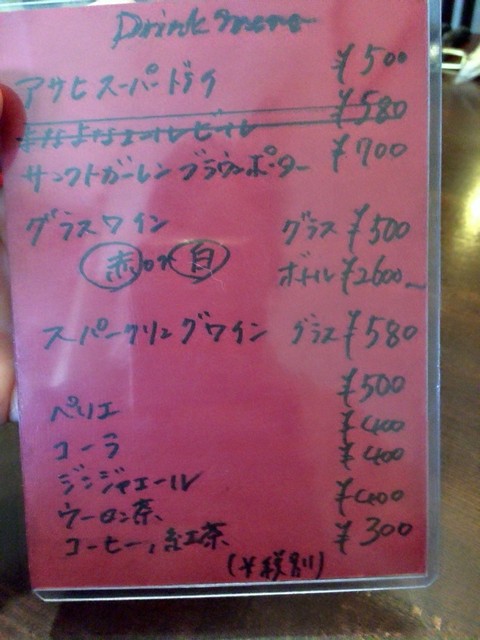 Drink menu
アサヒスーパードライ ¥500
よなよなエールビール ¥580
サンクトガーレンブラウンポーター ¥700
グラスワイン グラス ¥500
赤or白 ボトル ¥2600〜
スパークリングワイン グラス ¥580
ペリエ ¥500
コーラ ¥400
ジンジャエール ¥400
ウーロン茶 ¥400
コーヒー,紅茶 ¥300
(¥税別)